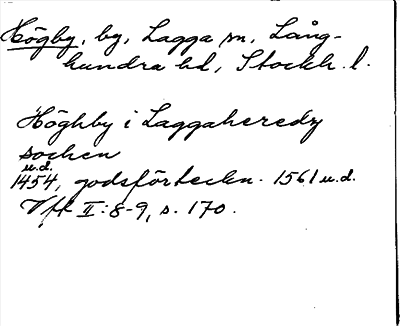 Högby, by, Lagga sn, Lång-
hundra hd, Stockh. l.
Höghby i Laggaheredz
sochen
u.d.
1454, godsförteckn. 1561 u.d.
Vfr II:8-9, s. 170.